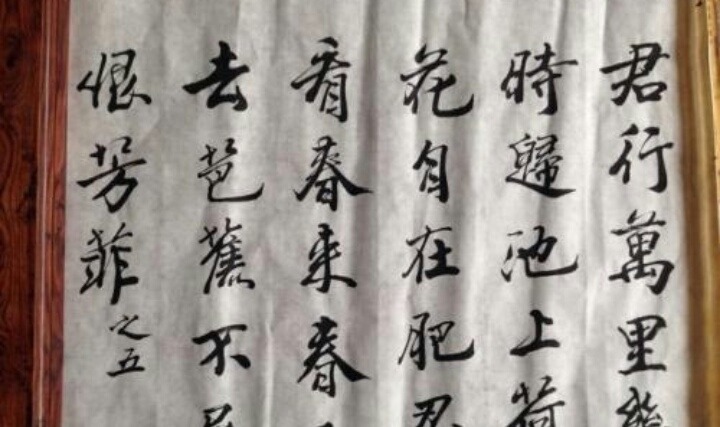 君行萬里幾
時歸池上荷
花自在肥忍
看春來春
去芭蕉不
恨芳菲之五